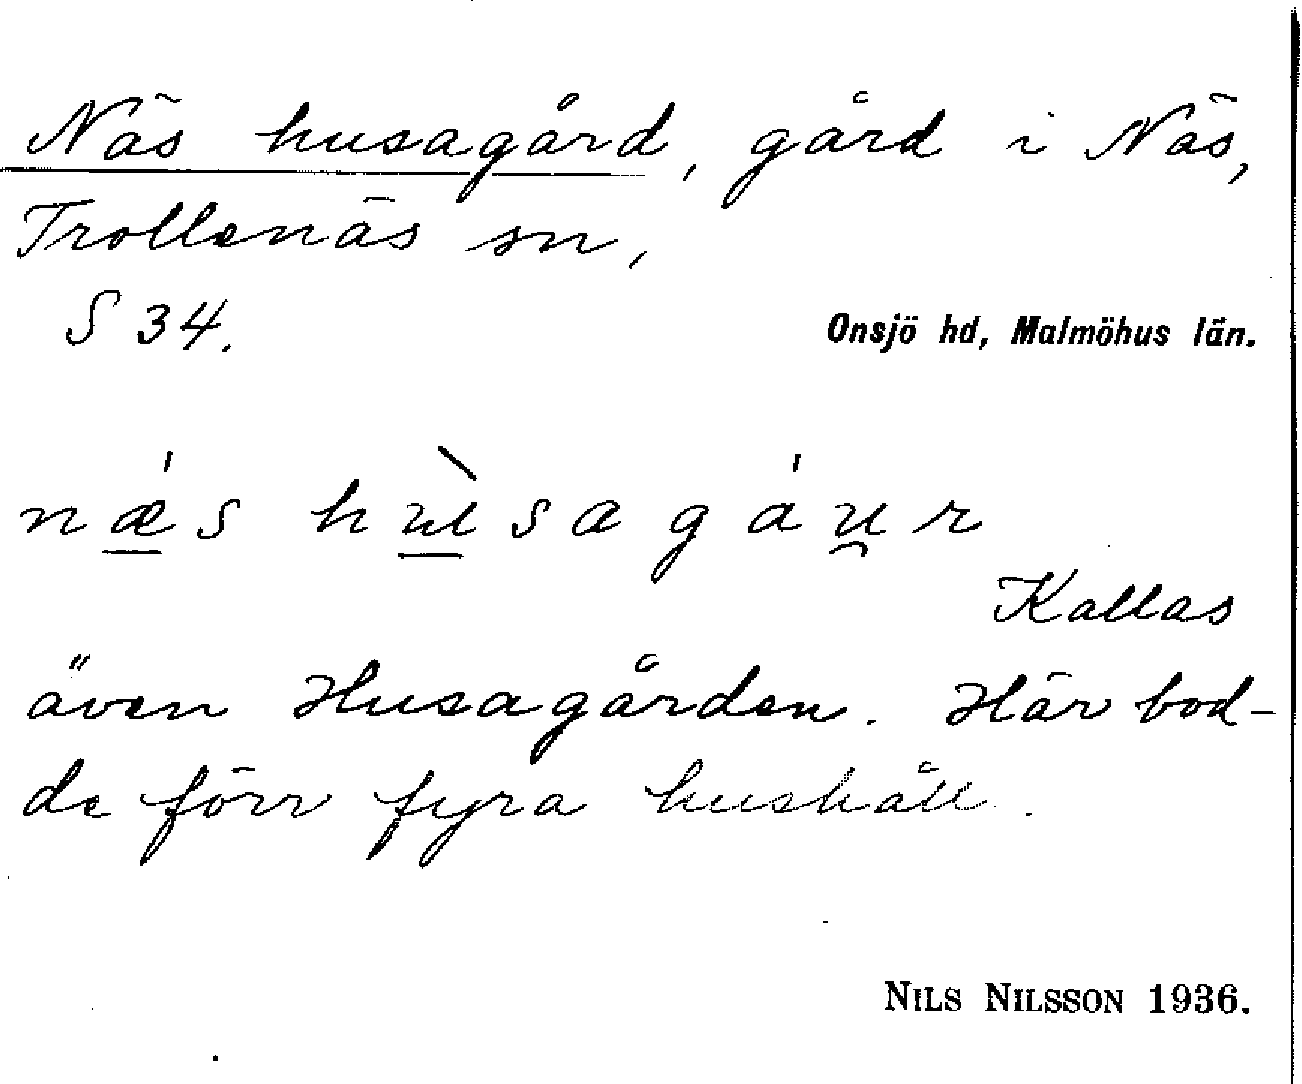 Näs husagård, gård i Näs,
Trollenäs sn,
S 34.
Onsjö hd, Malmöhus län.
nǽ̲s hù̲sagáu̯r
Kallas
även Husagården. Här bod-
de förr fyra hushåll.
NILS NILSSON 1936.